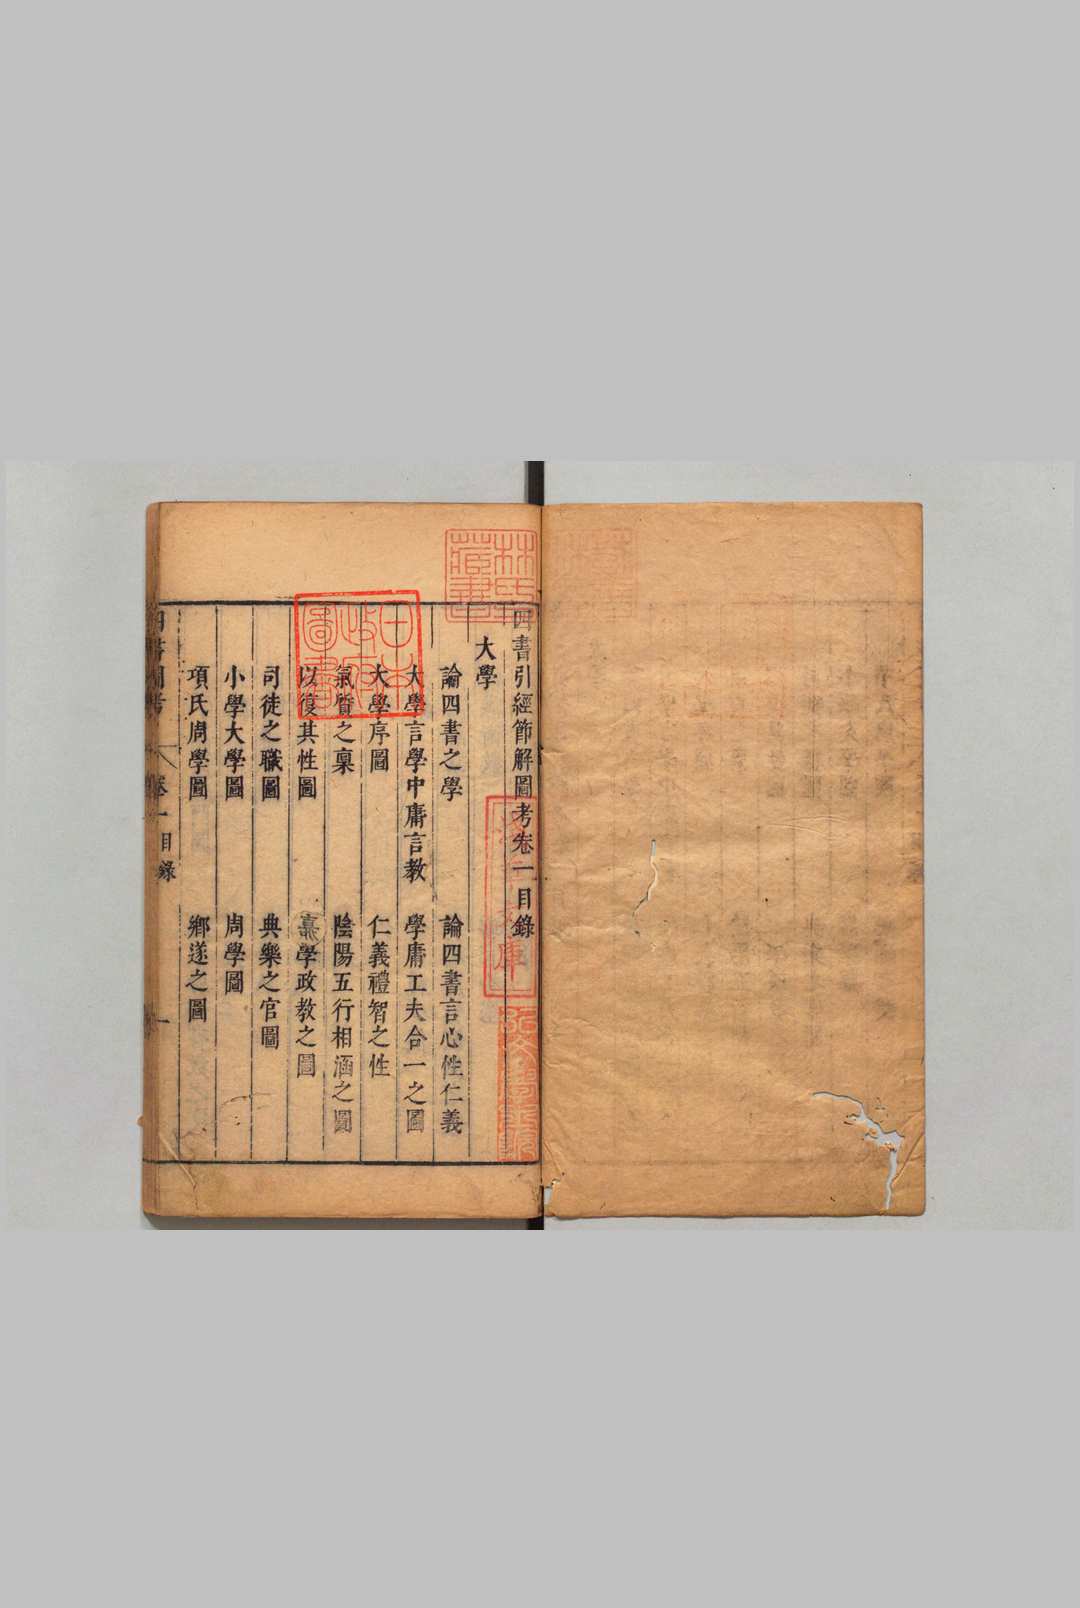 四書引經節解圖考卷一目錄
大學
論四書之學　論四書言心性仁義
大學言學中庸言教　學庸工夫合一之圖
大學序圖　仁義禮智之性
氣質之稟　陰陽五行相涵之圖
以復其性圖　學政教之圖
司徒之職圖　典樂之官圖
小學大學圖　周學圖
項氏周學圖　鄉遂之圖
卷一目錄　一
林氏藏書
日本政府圖書